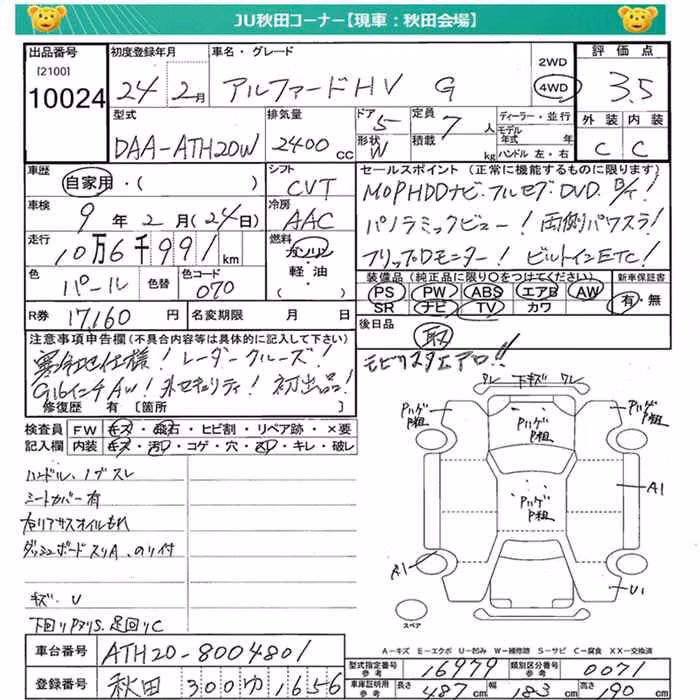 JU秋田コーナー【現車：秋田会場】
出品番号
[2100]
10024
初度登録年月
24年 2月
車名・グレード
アルファードHV G
2WD
4WD
評価点
3.5
型式
DAA-ATH20W
排気量
2400 cc
ドア
5
形状
W
定員
7 人
積載
kg
ディーラー・並行
モデル年式 年
ハンドル 左・右
外装 内装
C C
車歴
自家用・( )
シフト
CVT
車検
9年 2月(24日)
冷房
AAC
走行
10万6千991 km
燃料
ガソリン
軽・油
( )
色
パール
色替
色コード
070
R券
17,160 円
名変期限 月 日
セールスポイント(正常に機能するものに限ります)
MOPHDDナビ.フルセグ.DVD.B/T!
パノラミックビュー! 両側パワスラ!
フリップDモニター! ビルトインETC!
装備品(純正品に限り○をつけてください)
PS PW ABS エアB AW
SR ナビ TV カワ
新車保証書
有・無
後日品
取
モデリスタエアロ!!
注意事項申告欄(不具合内容等は具体的に記入して下さい)
寒冷地仕様! レーダークルーズ!
G16インチAW! 外セキュリティ! 初出品!
修復歴 有 [箇所
検査員記入欄
FW キズ・飛石・ヒビ割・リペア跡・×要
内装 キズ・汚レ・コゲ・穴・凹・キレ・破レ
ハンドル、ノブスレ
シートカバー有
右リアサスオイルもれ
ダッシュボードスリA、のり付
キズ・U
下回りPヌリS.足回りC
ワレ 下キズ ワレ
Pハゲ P粗
Pハゲ P粗
Pハゲ P粗
Pハゲ P粗
A1
A1
U1
スペア
A－キズ E－エクボ U－凹み W－補修跡 S－サビ C－腐食 XX－交換済
車台番号
ATH20-8004801
登録番号
秋田 300 ゆ 1656
型式指定番号 参考
16979
類別区分番号 参考
0071
車庫証明用 参考
長さ 487 cm
幅 183 cm
高さ 190 cm